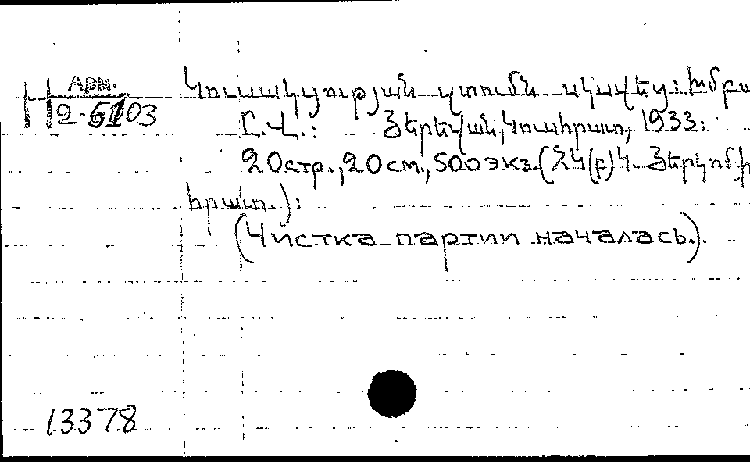 АРМ.
2-5103
Կուսակցության զտումն սկսվեց: Խմբա
Ը.Վ.: Յերեվան, Կուսհրատ, 1933:
20стр., 20см., 500экз. (ՀԿ(բ)Կ. Յերկոմի
հրատ.):
(Чистка партии началась.).
13378